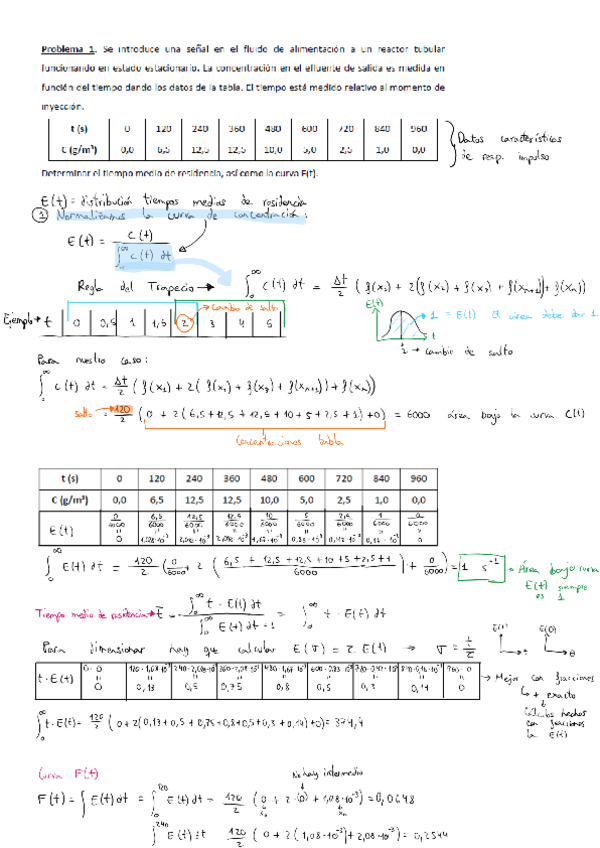 Problema 1. Se introduce una señal en el fluido de alimentación a un reactor tubular
funcionando en estado estacionario. La concentración en el efluente de salida es medida en
función del tiempo dando los datos de la tabla. El tiempo está medido relativo al momento de
inyección.
t (s) 0 120 240 360 480 600 720 840 960
C (g/m³) 0,0 6,5 12,5 12,5 10,0 5,0 2,5 1,0 0,0
Datos característicos
de resp. impulso
Determinar el tiempo medio de residencia, así como la curva F(t).
E(t) = distribución tiempos medios de residencia
① Normalizamos la curva de concentración:
E(t) = c(t) / ∫₀^∞ c(t) dt
Regla del Trapecio → ∫₀^∞ c(t) dt = Δt/2 (f(x₁) + 2(f(x₂) + f(x₃) + f(xₙ₊₁)) + f(xₙ))
Ejemplo → t 0 0,5 1 1,5 2 3 4 5
→ cambio de salto
E(t)
1 = E(t) El área debe dar 1
t
2 → cambio de salto
Para nuestro caso:
∫₀^∞ c(t) dt = Δt/2 (f(x₁) + 2(f(x₂) + f(x₃) + f(xₙ₊₁)) + f(xₙ))
salto = 120/2 (0 + 2(6,5 + 12,5 + 12,5 + 10 + 5 + 2,5 + 1) + 0) = 6000 área bajo la curva C(t)
Concentraciones tabla
t (s) 0 120 240 360 480 600 720 840 960
C (g/m³) 0,0 6,5 12,5 12,5 10,0 5,0 2,5 1,0 0,0
E(t) 0/6000 6,5/6000 12,5/6000 12,5/6000 10/6000 5/6000 2,5/6000 1/6000 0/6000
∫₀^∞ E(t) dt = 120/2 (0/6000 + 2 (6,5 + 12,5 + 12,5 + 10 + 5 + 2,5 + 1 / 6000) + 0/6000) = 1 s⁻¹
= Área bajo curva
E(t) siempre
es 1
Tiempo medio de residencia → t̄ = ∫₀^∞ t · E(t) dt / ∫₀^∞ E(t) dt = 1 = ∫₀^∞ t · E(t) dt
Para dimensionar hay que calcular E(σ) = τ E(t) → σ = t/τ
E(t) t E(θ) θ
t · E(t) 0 0,13 0,5 0,75 0,8 0,5 0,3 0,14 0
→ Mejor con fracciones
↳ + exacto
Cálculos hechos
con fracciones
la E(t)
∫₀^∞ t · E(t) = 120/2 (0 + 2(0,13 + 0,5 + 0,75 + 0,8 + 0,5 + 0,3 + 0,14) + 0) = 374,4
Curva F(t)
No hay intermedio
F(t) = ∫ E(t) dt = ∫₀^120 E(t) dt = 120/2 (0 + 2 · (0) + 1,08·10⁻³) = 0,0648
∫₀^240 E(t) dt 120/2 (0 + 2(1,08·10⁻³) + 2,08·10⁻³) = 0,2544